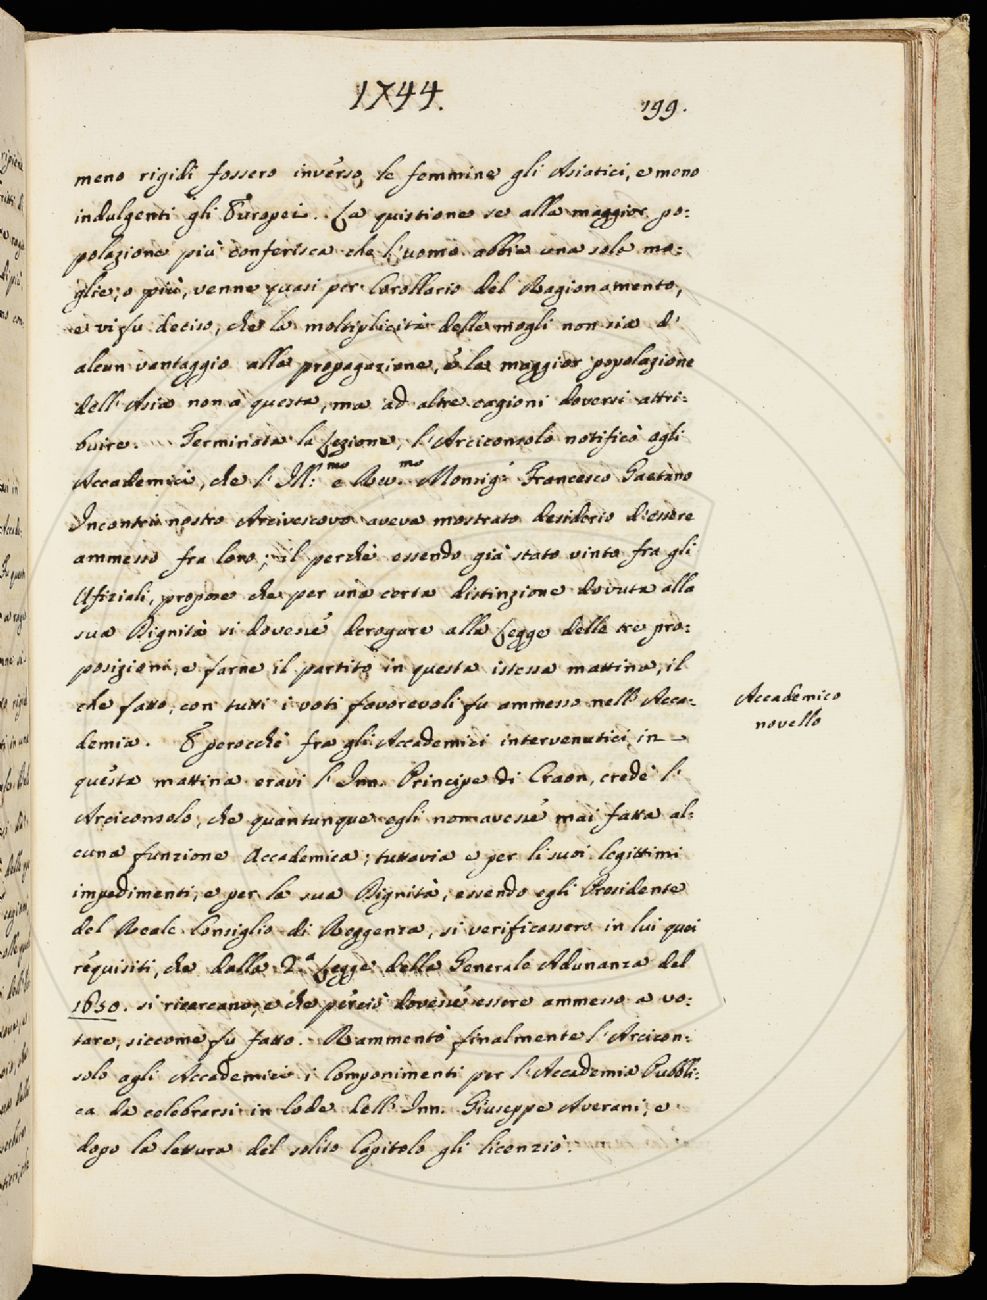 1744.
199.
meno rigidi fossero inverso le femmine gli Asiatici, e meno
indulgenti gli Europei. La quistione se alla maggior po:
polazione più conferisca che l'uomo abbia una sola mo:
glie, o più, venne quasi per Corollario del Ragionamento,
e vi fu deciso, che la moltiplicità delle mogli non sia d'
alcun vantaggio alla propagazione, e la maggior popolazione
dell'Asia non a questa, ma ad altre cagioni doversi attri:
buire. Terminata la Lezione, l'Arciconsolo notificò agli
Accademici, che l'Ill:mo e Rev.mo Monsig.r Francesco Gaetano
Incontri nostro Arcivescovo aveva mostrato desiderio d'essere
ammesso fra loro; il perchè essendo già stato vinto fra gli
Ufiziali, propose che per una certa distinzione dovuta alla
sua Dignità si dovesse derogare alla Legge delle tre pro:
posizioni, e farne il partito in questa istessa mattina, il
che fatto, con tutti i voti favorevoli fu ammesso nell'Acca:
demia. E perocchè fra gli Accademici intervenutici in
questa mattina eravi l'Inn. Principe di Craon, credè l'
Arciconsolo, che quantunque egli non avesse mai fatta al:
cuna funzione Accademica; tuttavia e per li suoi legittimi
impedimenti, e per la sua Dignità, essendo egli Presidente
del Reale Consiglio di Reggenza, si verificassero in lui quei
requisiti, che dalla 2.a Legge della Generale Adunanza del
1650. si ricercano, e che perciò dovesse essere ammesso a vo:
tare, siccome fu fatto. Rammentò finalmente l'Arcicon:
solo agli Accademici i Componimenti per l'Accademia Pubbli:
ca da celebrarsi in lode dell'Inn. Giuseppe Averani, e
dopo la lettura del solito Capitolo gli licenziò.
Accademico
novello